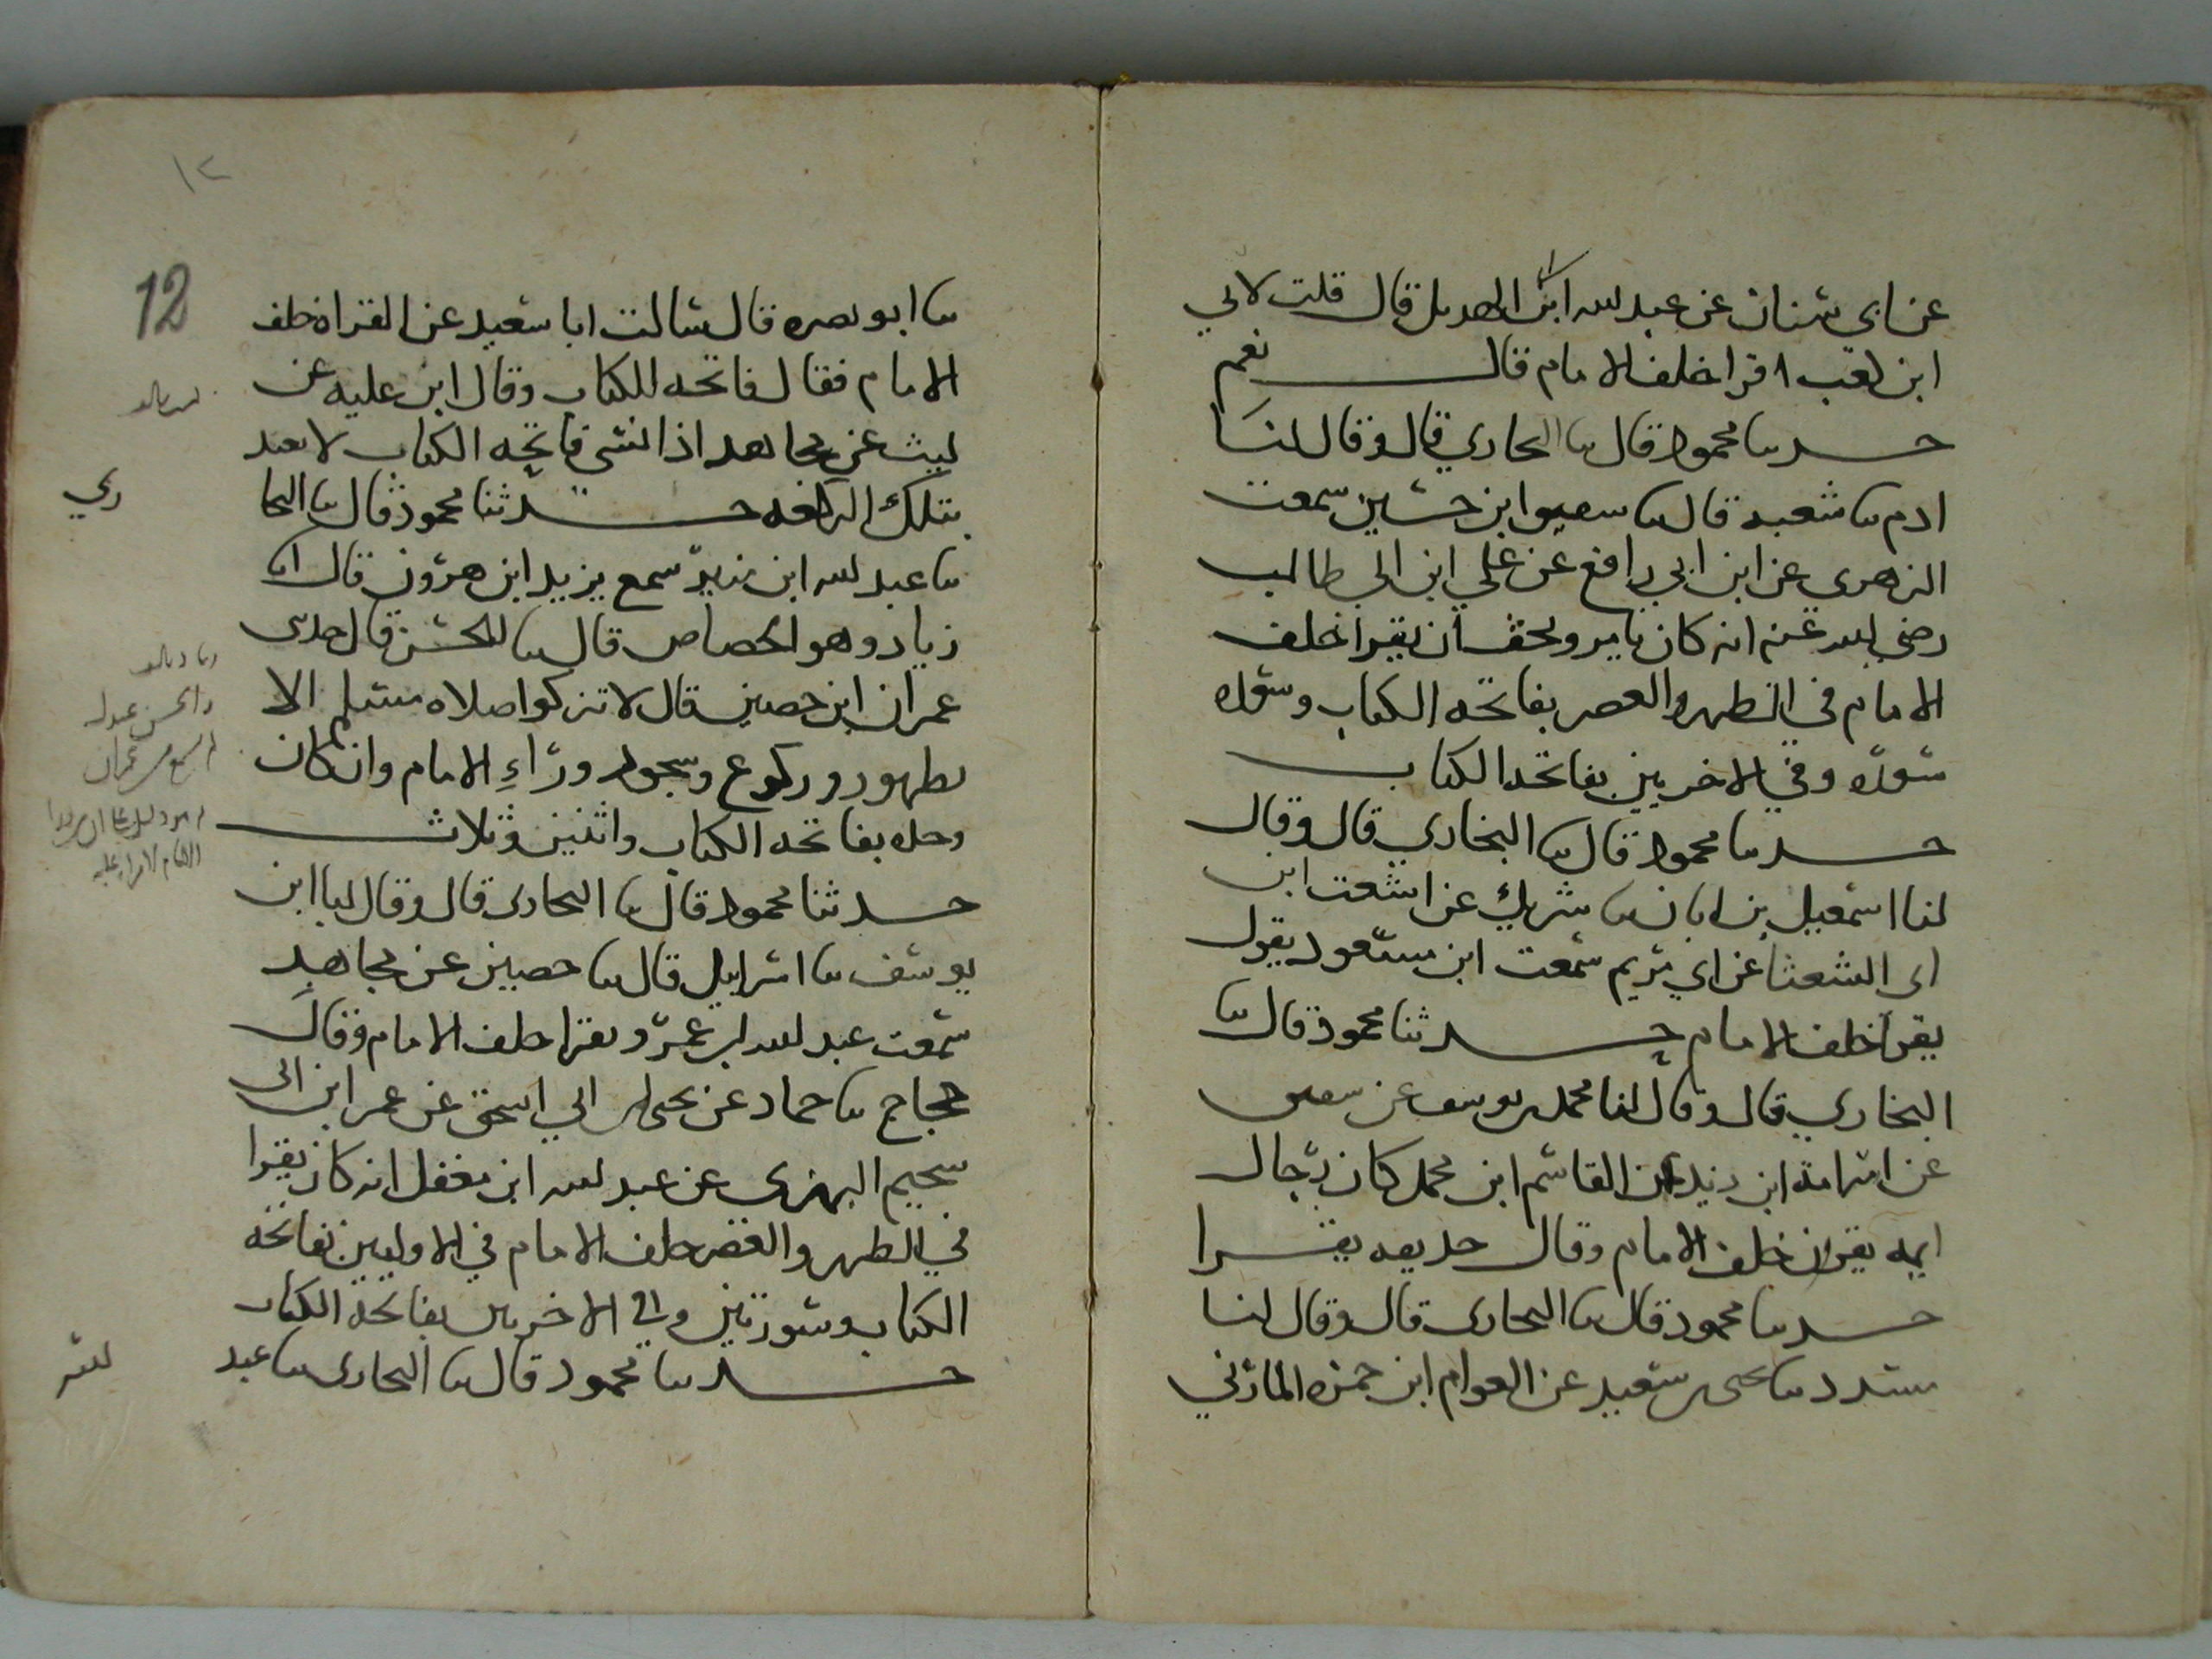 عن ابى سنان عن عبد الله ابن الهديل قال قلت لابي
ابن كعب اقرا خلف الامام قال نعم
حدثنا محمود قال ثنا البخاري قال وقال لنا
ادم ثنا شعبه قال ثنا سفيان ابن حسين سمعت
الزهرى عن ابن ابي رافع عن علي ابن ابي طالب
رضي الله عنه انه كان يامر ويحب ان يقرا خلف
الامام في الظهر والعصر بفاتحه الكتاب وسوره
سوره وفي الاخريين بفاتحه الكتاب
حدثنا محمود قال ثنا البخاري قال وقال
لنا اسمعيل بن ابان ثنا شريك عن اشعث ابن
ابى الشعثا عن ابي مريم سمعت ابن مسعود يقول
يقرا خلف الامام حدثنا محمود قال ثنا
البخاري قال وقال لنا محمد بن يوسف عن سفين
عن اسامة ابن زيد عن القاسم ابن محمد كان رجال
ايمه يقرون خلف الامام وقال حذيفه يقرا
حدثنا محمود قال ثنا البخارى قال وقال لنا
مسدد ثنا يحيى بن سعيد عن العوام ابن حمزه المازني
١٢
12
ثنا ابو نصره قال سالت ابا سعيد عن القراه خلف
الامام فقال فاتحه الكتاب وقال ابن عليه عن
ليث عن مجاهد اذا نسي فاتحه الكتاب لا يعتد
بتلك الركعه حدثنا محمود قال ثنا البخا
ري
ثنا عبد الله ابن منير سمع يزيد ابن هرون قال انا
زياد وهو الجصاص قال ثنا الحسن قال حدثنى
عمران ابن حصين قال لا تزكوا صلاه مسلم الا
بطهور وركوع وسجود وراء الامام وان كان
وحده بفاتحه الكتاب واثنين وثلاث
حدثنا محمود قال ثنا البخارى قال وقال لنا ابن
يوسف ثنا اسرايل قال ثنا حصين عن مجاهد
سمعت عبد الله بن عمرو يقرا خلف الامام وقال
حجاج ثنا حماد عن يحيى بن ابي اسحق عن عمر ابن ابى
سحيم البهزى عن عبد الله ابن مغفل انه كان يقرا
في الظهر والعصر خلف الامام في الاوليين بفاتحه
الكتاب وسورتين وفي الاخريين بفاتحه الكتاب
حدثنا محمود قال ثنا البخارى ثنا عبد